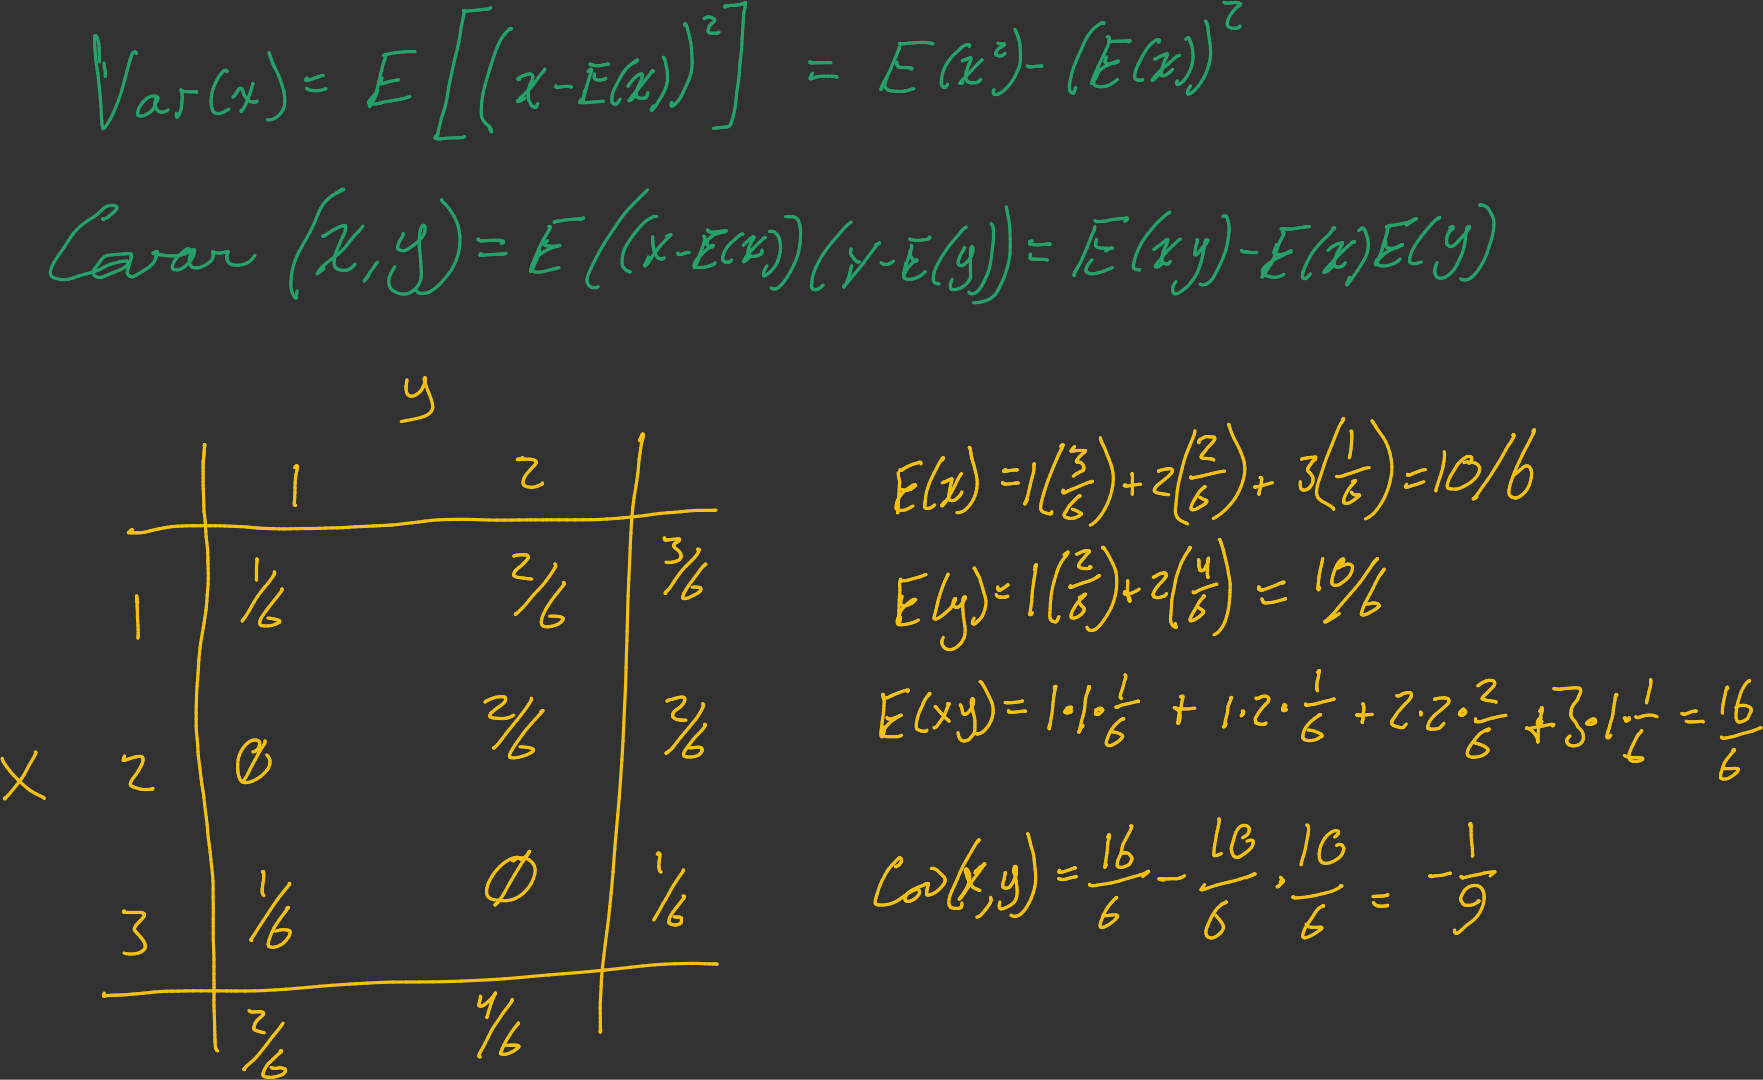 Var(x) = E[(x-E(x))²] = E(x²) - (E(x))²
Covar(x,y) = E((x-E(x))(y-E(y)) = E(xy) - E(x)E(y)
y
1 2
1 1/6 2/6 3/6
x 2 0 2/6 2/6
3 1/6 0 1/6
2/6 4/6
E(x) = 1(3/6) + 2(2/6) + 3(1/6) = 10/6
E(y) = 1(2/6) + 2(4/6) = 10/6
E(xy) = 1·1·1/6 + 1·2·1/6 + 2·2·2/6 + 3·1·1/6 = 16/6
Cov(x,y) = 16/6 - 10/6 · 10/6 = -1/9